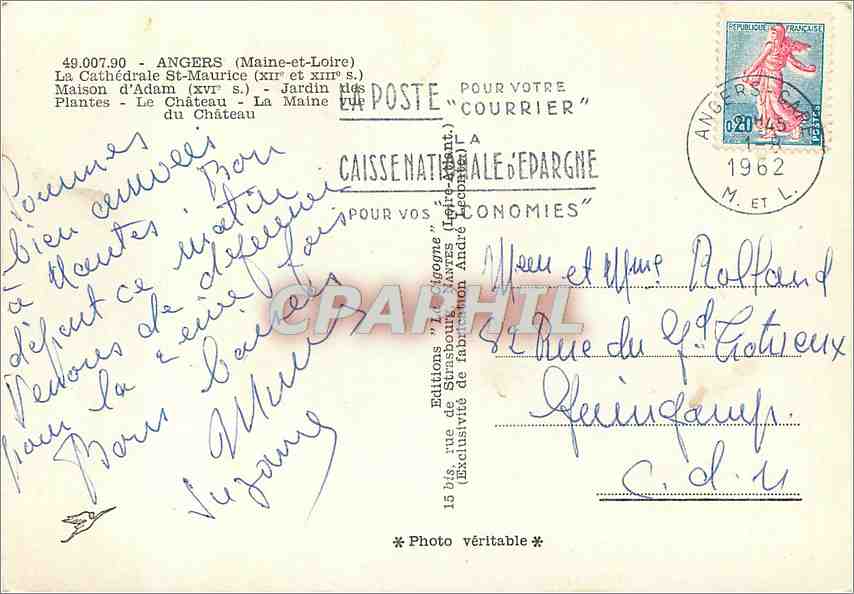 49.007.90 - ANGERS (Maine-et-Loire)
La Cathédrale St-Maurice (XIIe et XIIIe s.)
Maison d'Adam (XVIe s.) - Jardin des
Plantes - Le Château - La Maine vue
du Château
LA POSTE POUR VOTRE
"COURRIER"
LA
CAISSE NATIONALE D'EPARGNE
POUR VOS "ECONOMIES"
REPUBLIQUE FRANÇAISE
0,20
POSTES
ANGERS-GARE
1962
M. ET L.
Sommes
bien arrivés
à Nantes. Bon
départ ce matin
Venons de déjeuner
pour la 2eme fois
Bons baisers
Suzanne
Editions "La Cigogne"
15 bis, rue de Strasbourg, NANTES (Loire-Atlant.)
(Exclusivité de fabrication André Leconte)
et Mme Rolland
82 Rue du Gd Trotrieux
Guingamp.
C.d.N
CPARHIL
* Photo véritable *